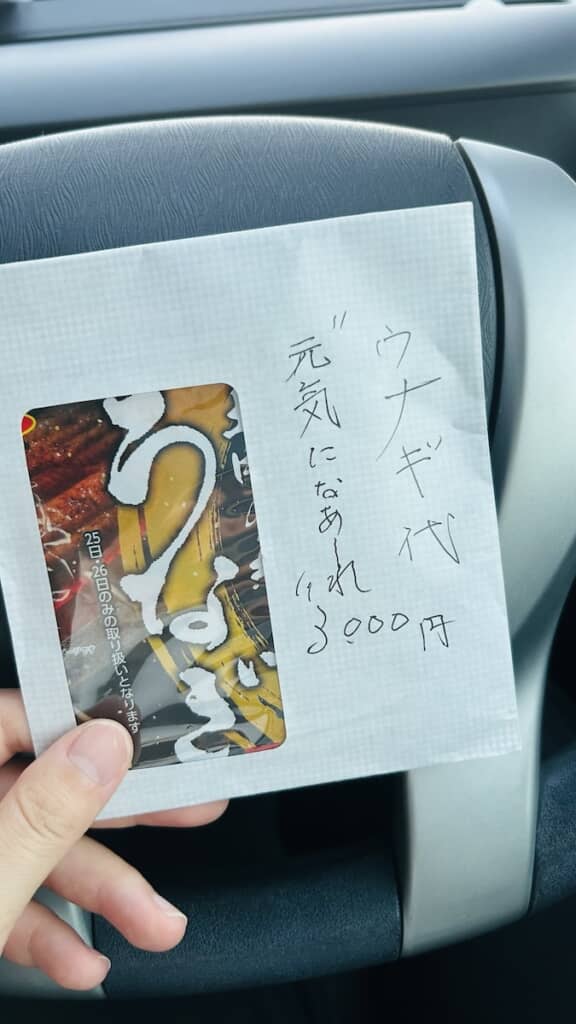 ウナギ代
"元気になあーれ"
3000円
うなぎ
25日・26日のみの取り扱いとなります